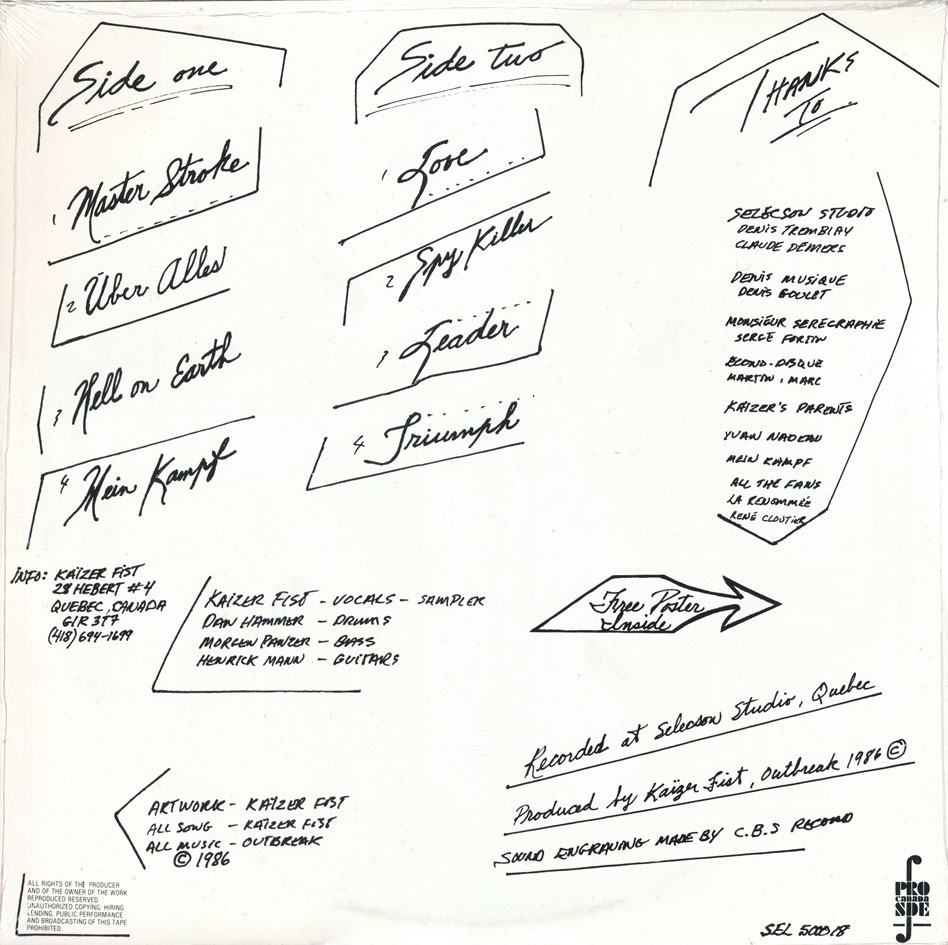 Side one
1 Master Stroke
2 Über Alles
3 Hell on Earth
4 Mein Kampf
Side two
1 Love
2 Spy Killer
3 Leader
4 Triumph
THANKS
TO
SELECSON STUDIO
DENIS TREMBLAY
CLAUDE DEMERS
DENIS MUSIQUE
DENIS GOULET
MONSIEUR SEREGRAPHIE
SERGE FORTIN
BLOND-DISQUE
MARTIN, MARC
KAIZER'S PARENTS
YVAN NADEAU
MEIN KAMPF
ALL THE FANS
LA RENOMMÉE
RENÉ CLOUTIER
INFO: KAÏZER FIST
28 HEBERT #4
QUEBEC, CANADA
G1R 3T7
(418) 694-1699
KAIZER FIST - VOCALS - SAMPLER
DAN HAMMER - DRUMS
MORGEN PANZER - BASS
HENRICK MANN - GUITARS
Free Poster
Inside
Recorded at Selecson Studio, Quebec
Produced by Kaïzer Fist, Outbreak 1986 ©
SOUND ENGRAVING MADE BY C.B.S RECORD
ARTWORK - KAÏZER FIST
ALL SONG - KAIZER FIST
ALL MUSIC - OUTBREAK
© 1986
ALL RIGHTS OF THE PRODUCER
AND OF THE OWNER OF THE WORK
REPRODUCED RESERVED.
UNAUTHORIZED COPYING, HIRING
LENDING, PUBLIC PERFORMANCE
AND BROADCASTING OF THIS TAPE
PROHIBITED.
SEL 500018
PRO
canada
SDE